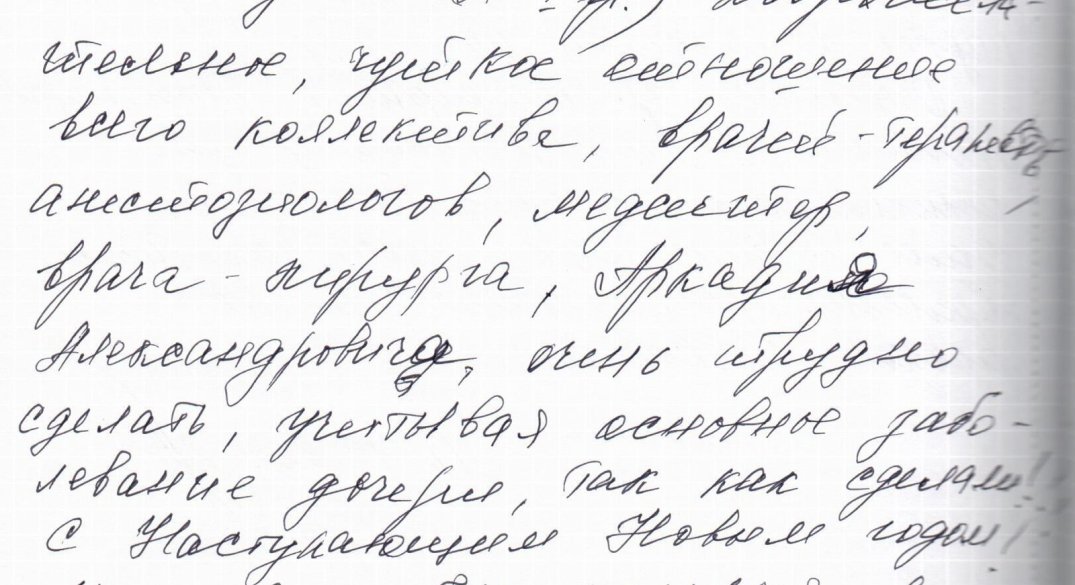 тельное, чуткое отношение
всего коллектива, врачей-терапевтов
анестезиологов, медсестер,
врача-хирурга, Аркадия
Александровича, очень трудно
сделать, учитывая основное забо-
левание дочери, так как сделали!
С Наступающим Новым годом!